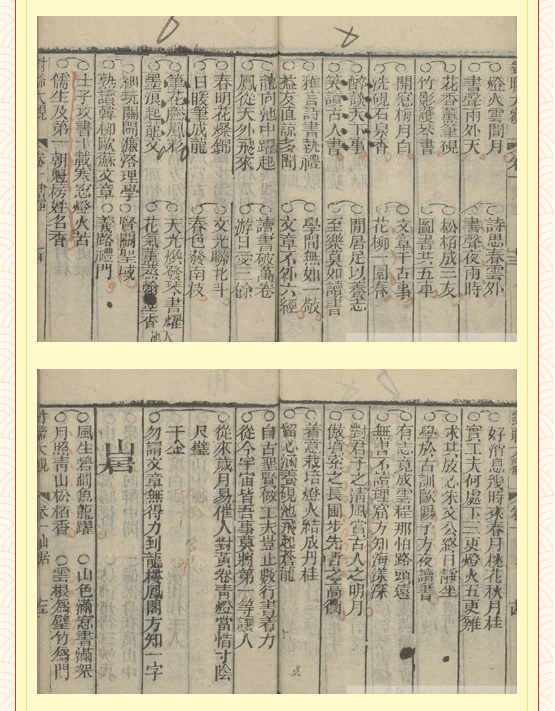 燈火雲間月 詩思春雲外
書聲雨外天 書聲夜雨時
花香墨筆硯 松柏成三友
竹影護琴書 圖書共五車
開窓梅月白 文章千古事
洗硯石泉香 花柳一園春
醉談天下事 閒居足以養志
笑讀古人書 至樂莫如讀書
雅言詩書執禮 學問無如一敬
益友直諒多聞 文章不外六經
龍向池中躍起 讀書破萬卷
鳳從天外飛來 游日愛三餘
春明花燦錦 文光聯北斗
日暖筆成龍 春色發南枝
墨浪起龍文
細玩關閩濂洛理學 賢關聖域
熟讀韓柳歐蘇文章 義路禮門
壬子攻書十載寒窓燈火苦
儒生及第一朝金榜姓名香
對聯大觀 卷一
好消息幾時來春月桃花秋月桂
實工夫何處下三更燈火五更雞
求其放心朱文公終日靜坐
學於古訓歐陽子方夜讀書
有志竟成雲程那怕路頭遠
無書不讀理窟方知海樣深
對君子之清風當古人之明月
留心涵養硯池飛起蒼龍
着意栽培燈火結成丹桂
自古聖賢做工夫豈止數行書着力
從今宇宙皆吾事莫將第一等讓人
從來歲月易催人對黃卷青燈當惜寸陰尺璧
勿謂文章無得力到龍樓鳳閣方知一字千金
山居
風生碧澗魚龍躍 山色滿窓書滿架
月照青山松栢香 雲根爲壁竹爲門
對聯大觀 卷一 山居